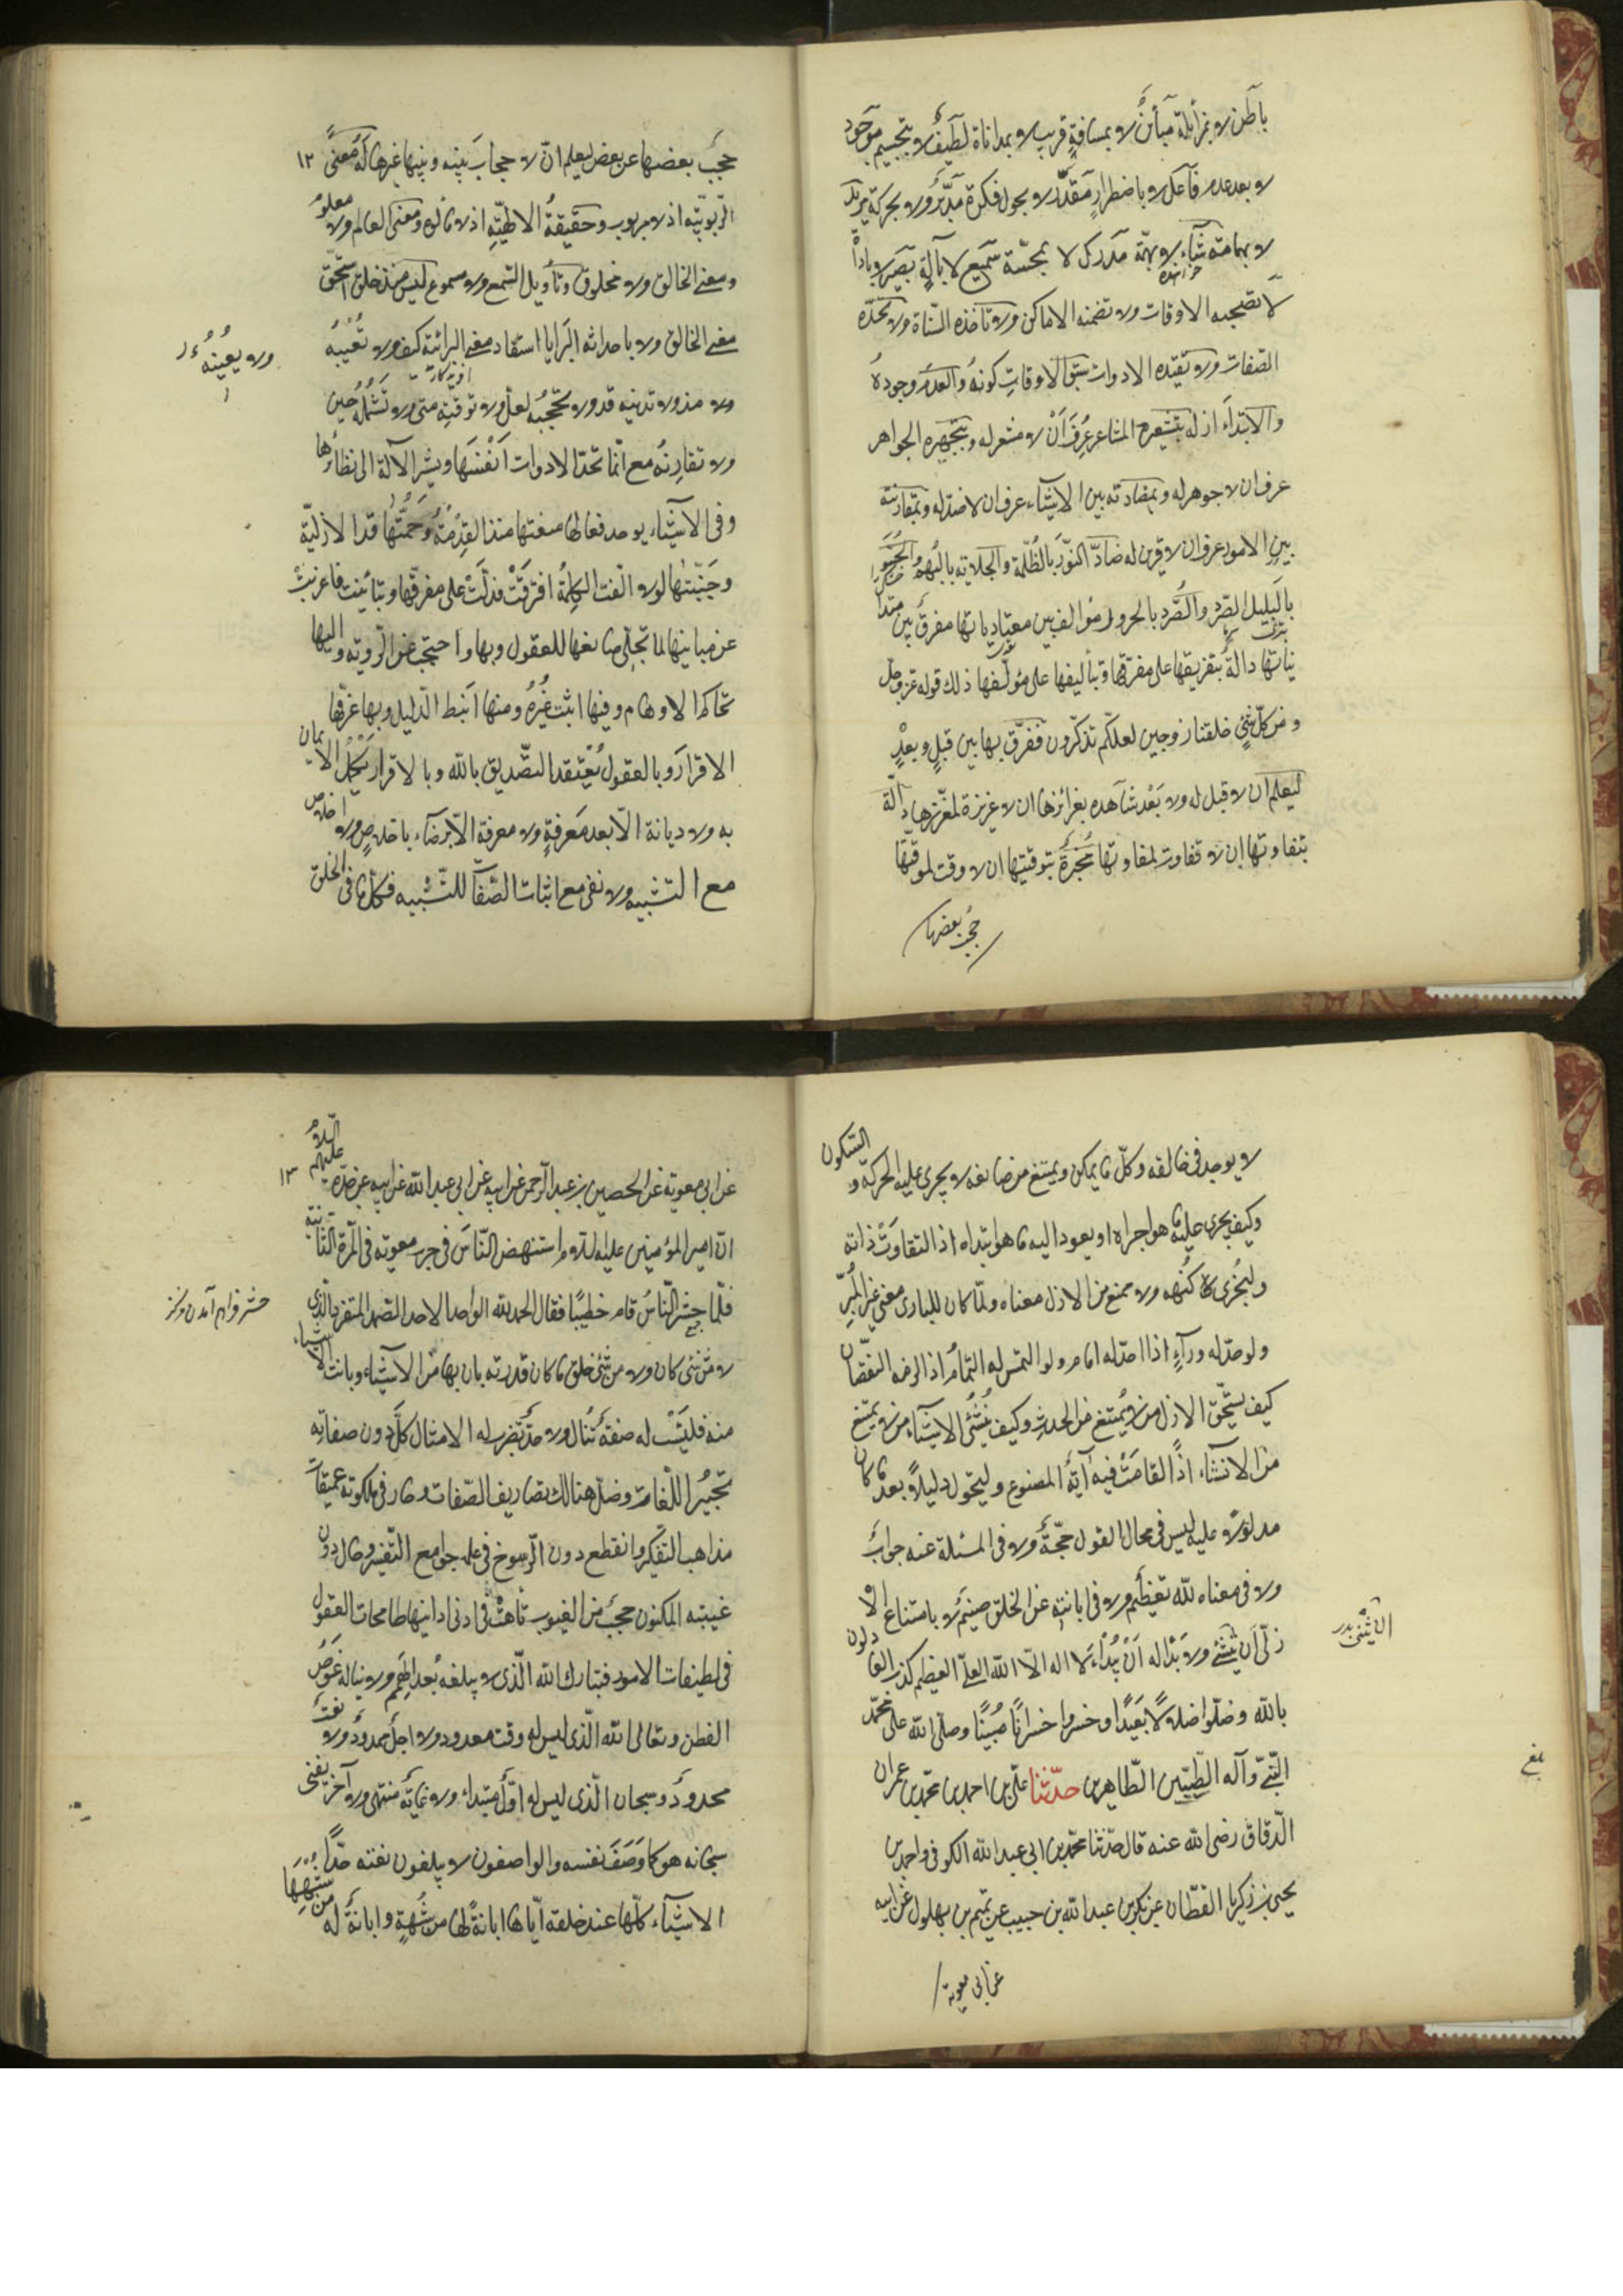 باطن لا بمزايلة مباين لا بمسافة قريب لا بمداناة لطيف لا بتجسيم موجود
لا بعد عدم فاعل لا باضطرار مقدّر لا بجول فكرة مدبّر لا بحركة مريد
لا بهمامة شاء لا بهمّة مدرك لا بمجسّة سميع لا بآلة بصير لا باداة
لا تصحبه الاوقات ولا تضمنه الاماكن ولا تاخذه السنات ولا تحدّه
الصّفات ولا تقيّده الادوات سبق الاوقات كونه والعدم وجوده
والابتداء ازله بتشعيره المشاعر عرف أن لا مشعر له وبتجهيره الجواهر
عرف ان لا جوهر له وبمضادته بين الاشياء عرف ان لا ضدّ له وبمقارنته
بين الامور عرف ان لا قرين له ضادّ النّور بالظّلمة والجلاية بالبهم والجسو
بالبلل والصّرد بالحرور مؤالف بين متعادياتها مفرّق بين متدا
نياتها دالّة بتفريقها على مفرّقها وبتأليفها على مؤلّفها ذلك قوله عزّ وجلّ
ومن كلّ شئ خلقنا زوجين لعلّكم تذكّرون ففرّق بها بين قبل وبعد
ليعلم ان لا قبل له ولا بعد شاهدة بغرائزها ان لا غريزة لمغرّزها دالّة
بتفاوتها إن لا تفاوت لمفاوتها مخبرة بتوقيتها ان لا وقت لموقّتها
حجب بعضها
١٢
حجب بعضها عن بعض ليعلم ان لا حجاب بينه وبينها غيرها له معنى
الرّبوبيّه اذ لا مربوب وحقيقة الالهيّه اذ لا مالوه ومعنى العالم ولا معلوم
ومعنى الخالق ولا مخلوق وتأويل السّمع ولا مسموع ليس منذ خلق استحقّ
معنى الخالق ولا باحداثه البرايا استفاد معنى البرائيّة كيف ولا تغيّبه
ولا يعينه
ولا مذ ولا تدنيه قد ولا تحجبه لعلّ ولا توقته متى ولا تشمله حين
ولا تقارنه مع انّما تحدّ الادوات انفسها ويشير الآلة الى نظائرها
وفي الاشياء يوجد فعالها منعتها منذ القدمة وحمتها قد الازليّة
وجنّبتها لولا الفت الكلمة افترقت فدلّت على مفرّقها وتباينت فاعربت
عن مباينها لما تجلّى صانعها للعقول وبها احتجب عن الرّؤية واليها
تحاكم الاوهام وفيها اثبت غيره ومنها انبط الدّليل وبها عرّفها
الاقرار وبالعقول يعتقد التّصديق بالله وبالاقرار يكمل الايمان
به ولا ديانة الّا بعد معرفة ولا معرفة الّا باخلاص ولا اخلاص
مع التشبيه ولا نفى مع اثبات الصّفات للتّشبيه فكلّ ما في الخلق
لا يوجد في خالقه وكلّ ما يمكن ويمتنع من صانعه لا يجرى عليه الحركة والسّكون
وكيف يجرى عليه ما هو اجراه او يعود اليه ما هو ابتداه اذا لتفاوتت ذاته
ولتجزّى كنهه ولامتنع من الازل معناه ولمّا كان للبارى معنى غير المبرء
ولو حدّ له وراء اذا حدّ له امام ولو التمس له التّمام اذا لزمه النّقصان
كيف يستحقّ الازل من لا يمتنع من الحدث وكيف ينشئ الاشياء من لا يمتنع
من الانشاء اذا لقامت فيه آية المصنوع ولتحوّل دليلا بعد ما كان
مدلولا عليه ليس في محال القول حجّة ولا في المسئلة عنه جواب
ولا في معناه لله تعظيم ولا في ابانته عن الخلق ضيم لا بامتناع الا
زلى ان يثنى ولا بدأ له ان يبدأ لا اله الّا الله العلىّ العظيم كذب العادلون
بالله وضلّوا ضلالا بعيدا وخسروا خسرانا مبينا وصلّى الله على محمّد
النّبىّ وآله الطّيّبين الطّاهرين حدّثنا علىّ بن احمد بن محمّد بن عمران
الدّقاق رضى الله عنه قال حدّثنا محمّد بن ابى عبد الله الكوفى واحمد بن
يحيى بن زكريا القطّان عن بكر بن عبد الله بن حبيب عن تميم بن بهلول عن ابيه
عن ابى معوية
١٣
عن ابى معوية عن الحصين بن عبد الرّحمن عن ابيه عن ابى عبد الله عن ابيه عن جدّه عليهم السّلام
انّ امير المؤمنين عليه السّلام استنهض النّاس في حرب معوية في المرّة الثّانية
فلمّا حشر النّاس قام خطيبا فقال الحمد لله الواحد الاحد الصّمد المتفرّد الّذى
لا من شئ كان ولا من شئ خلق ما كان قدرته بان بها من الاشياء وبانت الاشياء
منه فليست له صفة تنال ولا حدّ تضرب له الامثال كلّ دون صفاته
تحبير اللّغات وضلّ هنالك تصاريف الصّفات وحار في ملكوته عميقات
مذاهب التفكّر وانقطع دون الرّسوخ في علمه جوامع التّفسير وحال دون
غيبه المكنون حجب من الغيوب تاهت في ادنى ادانيها طامحات العقول
في لطيفات الامور فتبارك الله الّذى لا يبلغه بعد الهمم ولا يناله غوص
الفطن وتعالى الله الّذى ليس له وقت معدود ولا اجل ممدود ولا نعت
محدود وسبحان الّذى ليس له اوّل مبتداء ولا غاية منتهى ولا آخر يفنى
سبحانه هو كما وصف نفسه والواصفون لا يبلغون نعته حدّ
الاشياء كلّها عند خلقه ايّاها ابانة لها من شبهه وابانة له من شبهها